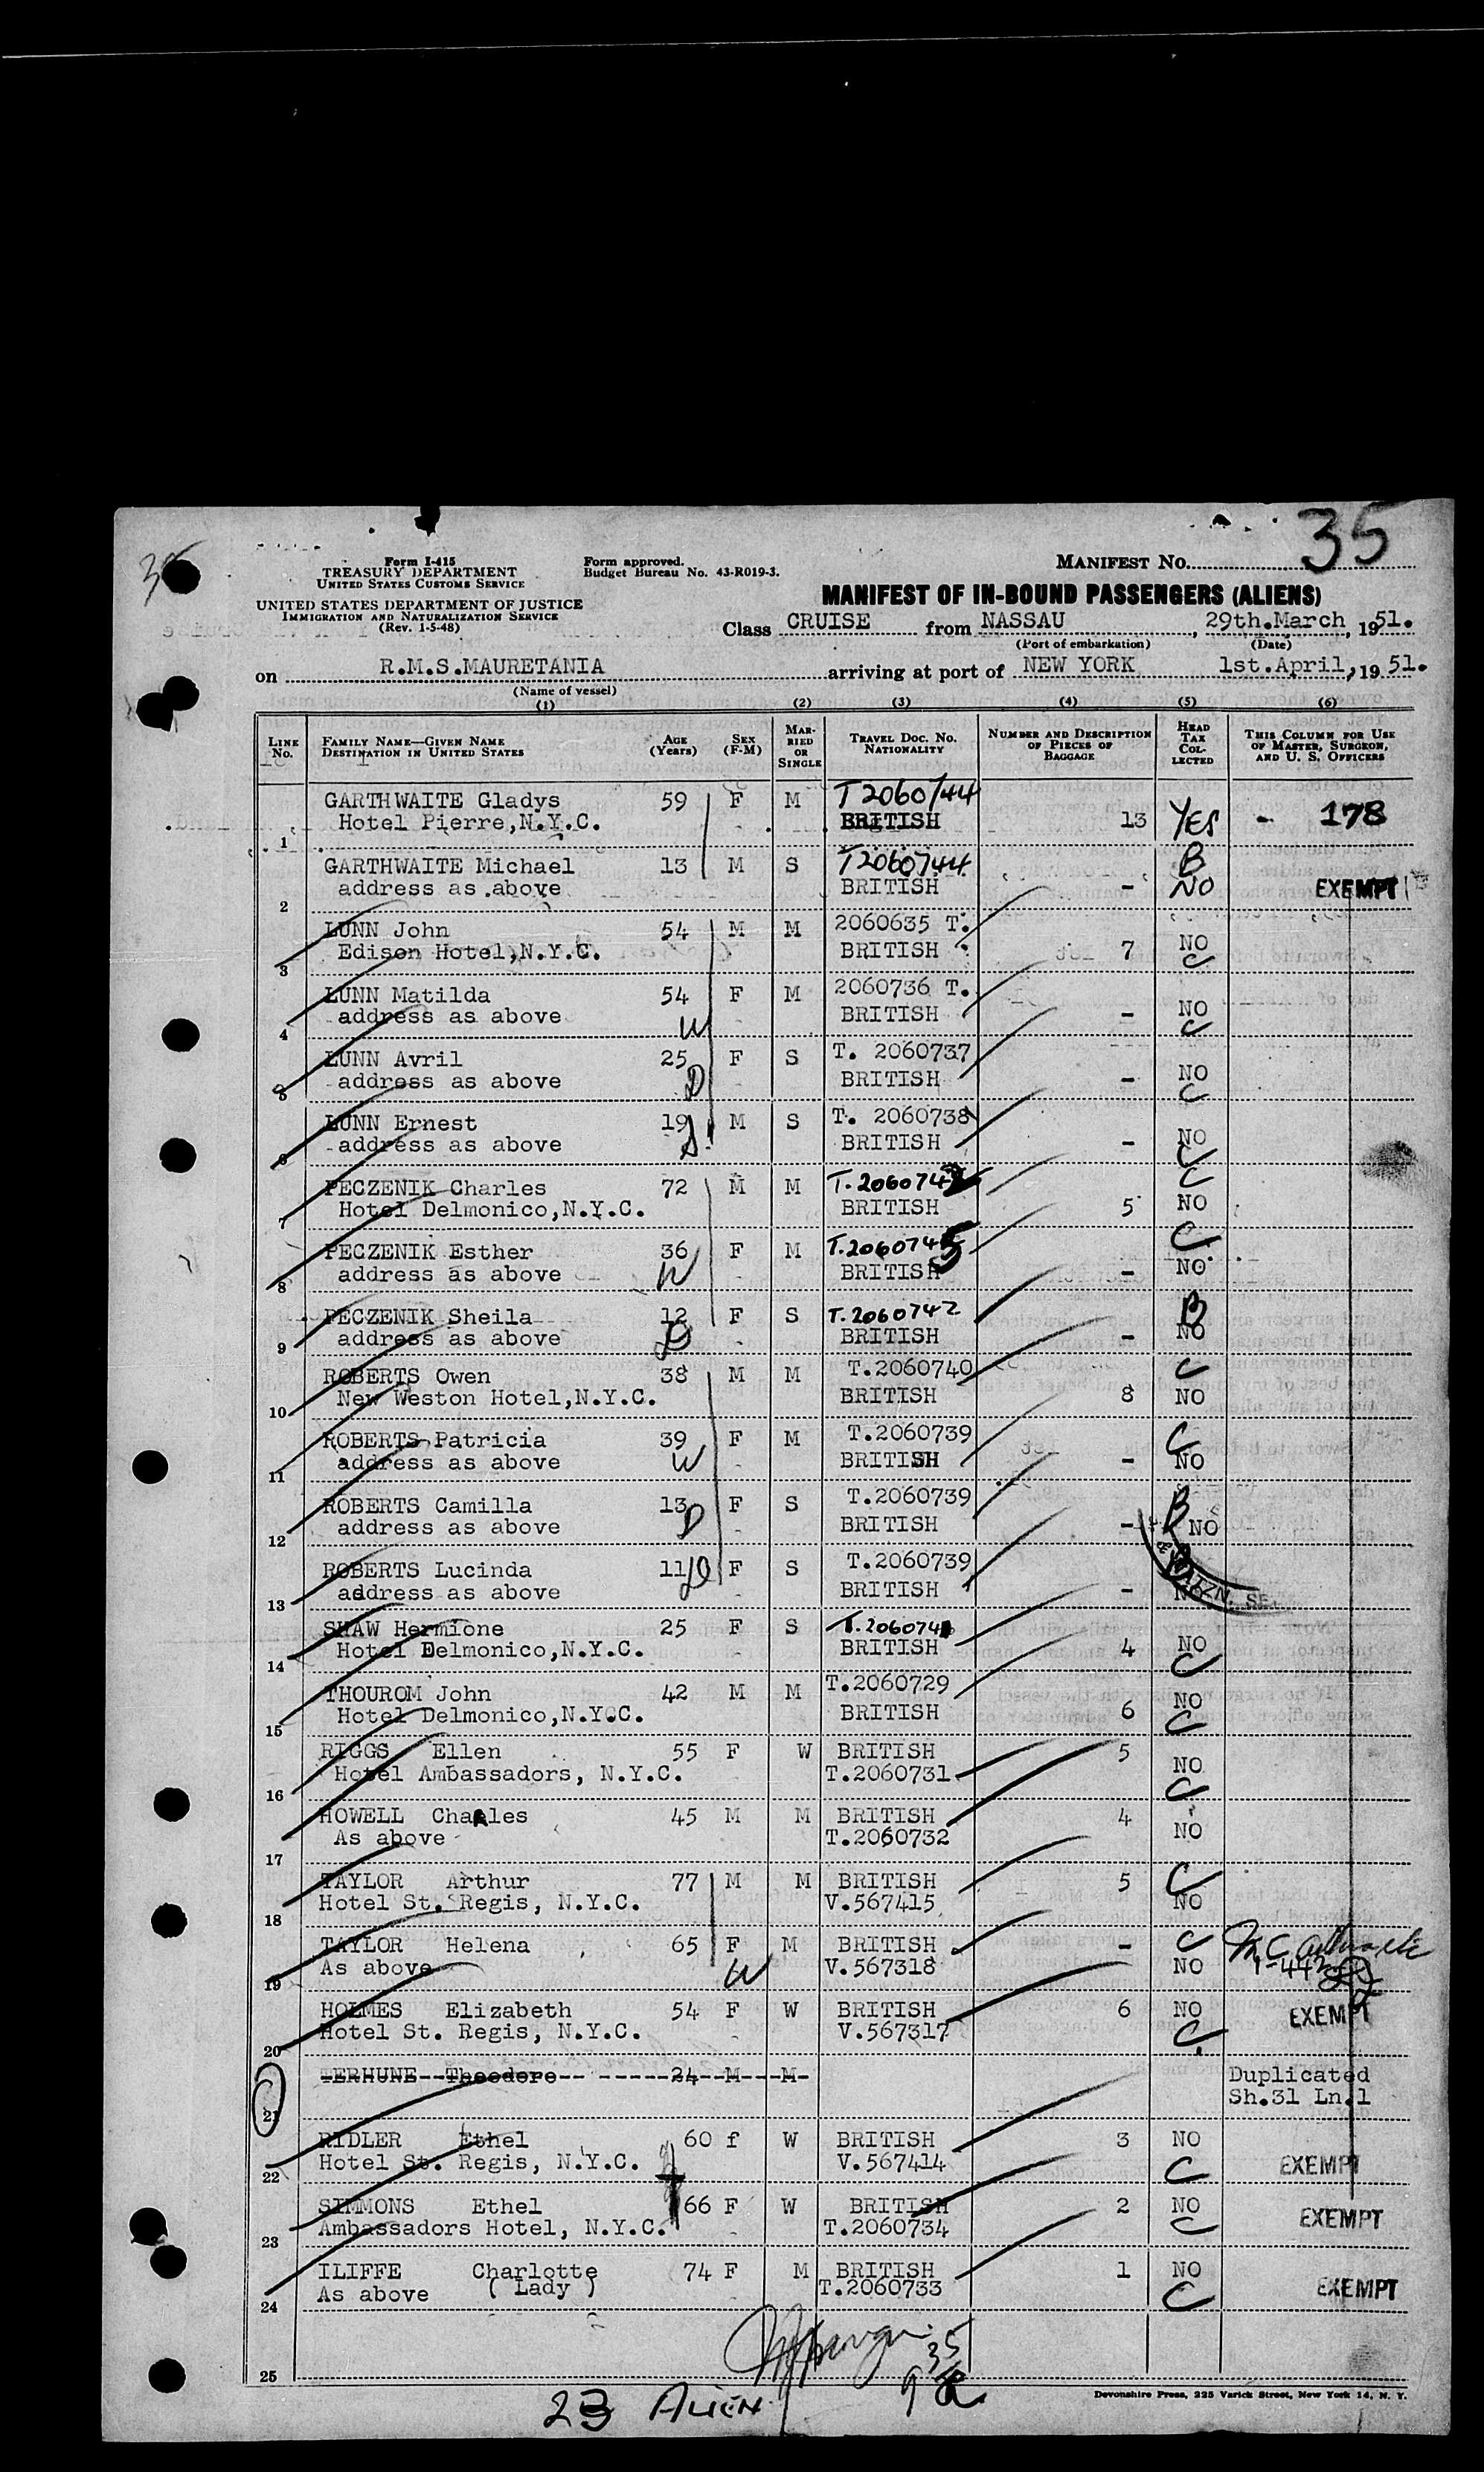 35
Form I-415
TREASURY DEPARTMENT
UNITED STATES CUSTOMS SERVICE
Form approved.
Budget Bureau No. 43-R019-3.
MANIFEST No. 35
UNITED STATES DEPARTMENT OF JUSTICE
IMMIGRATION AND NATURALIZATION SERVICE
(Rev. 1-5-48)
MANIFEST OF IN-BOUND PASSENGERS (ALIENS)
Class CRUISE from NASSAU, 29th.March, 1951.
(Port of embarkation) (Date)
on R.M.S.MAURETANIA arriving at port of NEW YORK 1st.April, 1951.
(Name of vessel)
(1) (2) (3) (4) (5) (6)
LINE No. FAMILY NAME—GIVEN NAME DESTINATION IN UNITED STATES AGE (Years) SEX (F-M) MARRIED OR SINGLE TRAVEL DOC. NO. NATIONALITY NUMBER AND DESCRIPTION OF PIECES OF BAGGAGE HEAD TAX COLLECTED THIS COLUMN FOR USE OF MASTER, SURGEON, AND U. S. OFFICERS
GARTHWAITE Gladys 59 F M T2060744
1 Hotel Pierre,N.Y.C. BRITISH 13 YES - 178
GARTHWAITE Michael 13 M S T2060744 B
2 address as above BRITISH - NO EXEMPT
LUNN John 54 M M 2060635 T.
3 Edison Hotel,N.Y.C. BRITISH 7 NO C
LUNN Matilda 54 F M 2060736 T.
4 address as above W BRITISH - NO C
LUNN Avril 25 F S T. 2060737
5 address as above D BRITISH - NO C
LUNN Ernest 19 M S T. 2060738
6 address as above S. BRITISH - NO C
PECZENIK Charles 72 M M C
7 Hotel Delmonico,N.Y.C. BRITISH 5 NO
PECZENIK Esther 36 F M T.2060745 C
8 address as above W BRITISH - NO
PECZENIK Sheila 12 F S T.2060742 B
9 address as above D BRITISH - NO
ROBERTS Owen 38 M M T.2060740 C
10 New Weston Hotel,N.Y.C. BRITISH 8 NO
ROBERTS Patricia 39 F M T.2060739 C
11 address as above W BRITISH - NO
ROBERTS Camilla 13 F S T.2060739 B
12 address as above D BRITISH - NO
ROBERTS Lucinda 11 D F S T.2060739 B
13 address as above BRITISH - NO
& NATZN. SE
SHAW Hermione 25 F S
14 Hotel Delmonico,N.Y.C. BRITISH 4 NO C
THOUROM John 42 M M T.2060729
15 Hotel Delmonico,N.Y.C. BRITISH 6 NO C
RIGGS Ellen 55 F W BRITISH 5
16 Hotel Ambassadors, N.Y.C. T.2060731 NO C
HOWELL Charles 45 M M BRITISH 4
17 As above T.2060732 NO
TAYLOR Arthur 77 M M BRITISH 5 C
18 Hotel St. Regis, N.Y.C. V.567415 NO
TAYLOR Helena 65 F M BRITISH - C
19 As above W V.567318 NO
HOLMES Elizabeth 54 F W BRITISH 6 NO EXEMPT
20 Hotel St. Regis, N.Y.C. V.567317 C
TERHUNE Theodore 24 M M Duplicated
21 Sh.31 Ln.1
RIDLER Ethel 60 f W BRITISH 3 NO
22 Hotel St. Regis, N.Y.C. V.567414 C EXEMPT
SIMMONS Ethel 66 F W BRITISH 2 NO
23 Ambassadors Hotel, N.Y.C. T.2060734 C EXEMPT
ILIFFE Charlotte 74 F M BRITISH 1 NO
24 As above ( Lady ) T.2060733 C EXEMPT
25
35
9
23 ALIEN
Devonshire Press, 225 Varick Street, New York 14, N. Y.